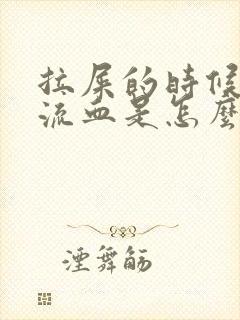 拉屎的时候
流血是怎麼
湮舞觞